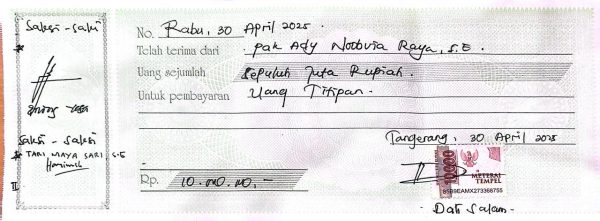 Saksi - saksi
No. Rabu, 30 April 2025.
Telah terima dari Pak Ady Noibvia Raya, S.E.
Uang sejumlah Sepuluh Juta Rupiah.
Untuk pembayaran Uang Titipan -
Saksi - Saksi
TARI MAYA SARI S.E
II
Tangerang, 30 April 2025
10000
METERAI
TEMPEL
Rp. 10.000.000,-